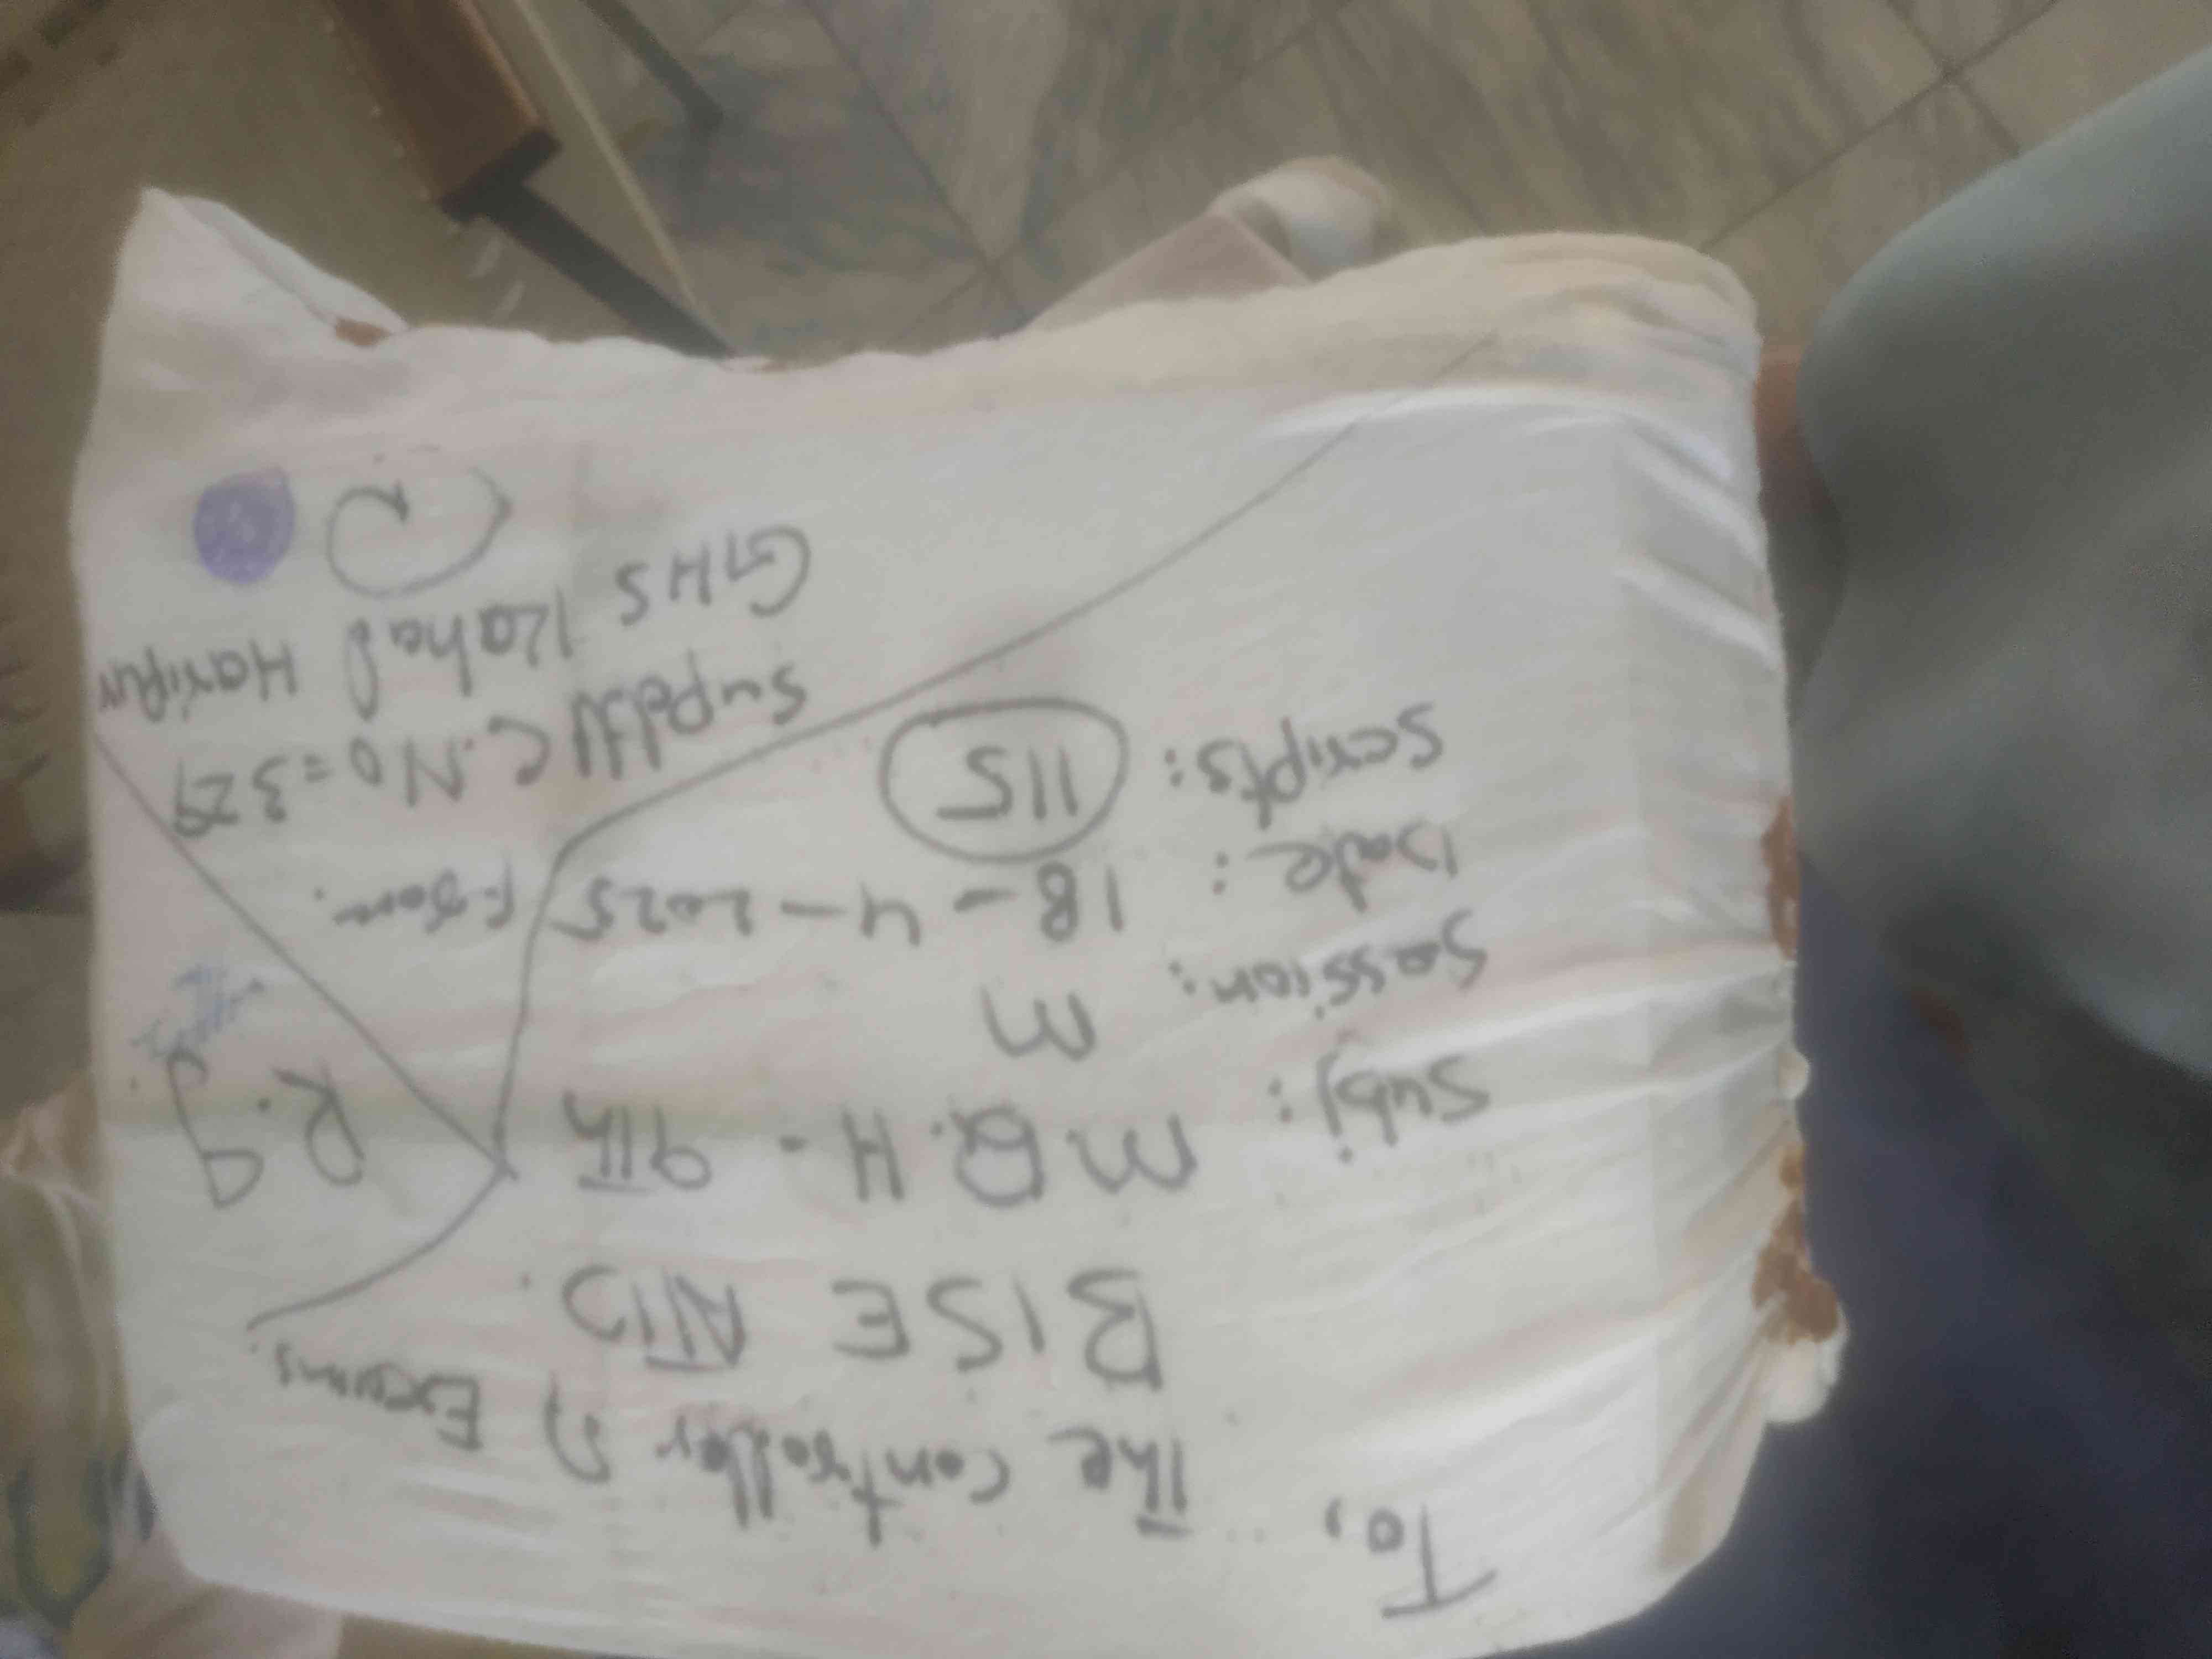 To,
The controller of Exams.
BISE ATD.
Subj: M.Q.H - 9th
Session: M
Date: 18-4-2025
Scripts: 115
R.9
From.
Supdtt C.No=329
GHS Kahal Haripur